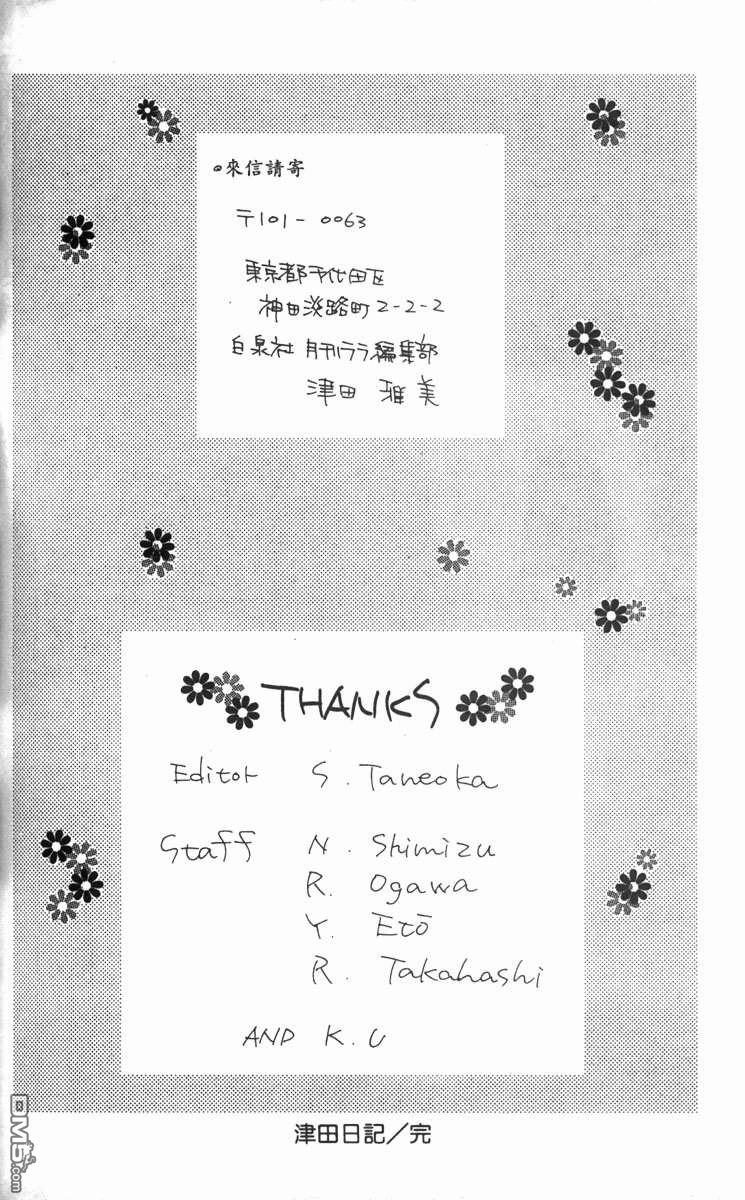 ◎來信請寄
〒101-0063
東京都千代田区
神田淡路町2-2-2
白泉社 月刊ララ編集部
津田 雅美
THANKS
Editor S. Taneoka
Staff N. Shimizu
R. Ogawa
Y. Etō
R. Takahashi
AND K.U
津田日記/完
DM5.com